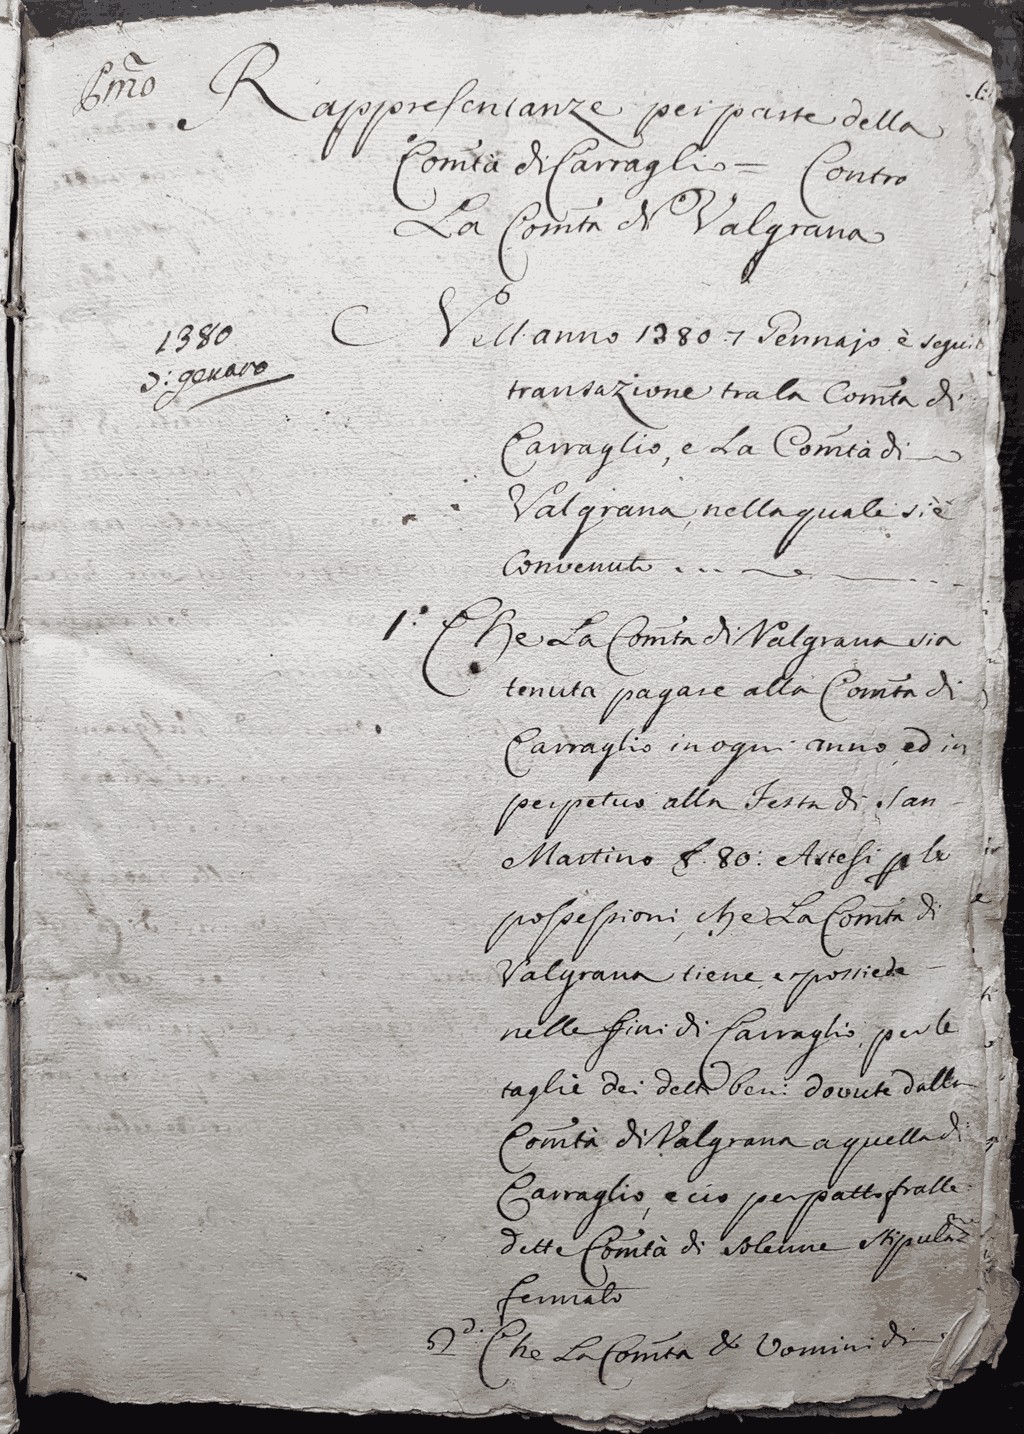 Rappresentanze per parte della
Com̃tà di Carraglio = Contro
La Com̃tà di Valgrana
1380
di genaro
Nell'anno 1380. 7 Gennajo è seguit
transazione tra la Com̃tà di
Carraglio, e La Com̃tà di
Valgrana, nella quale si è
Convenuto
1.° Che La Com̃tà di Valgrana sia
tenuta pagare alla Com̃tà di
Carraglio in ogni anno, ed in
perpetuo alla Festa di San
Martino £. 80: Astesi p le
possessioni, che La Com̃tà di
Valgrana tiene, e possiede
nelle fini di Carraglio, per le
taglie dei detti beni dovute dalla
Com̃tà di Valgrana a quella di
Carraglio, e ciò per patto fralle
dette Com̃tà di solenne stipulaz
fermato
2.d. Che La Com̃tà & Uomini di